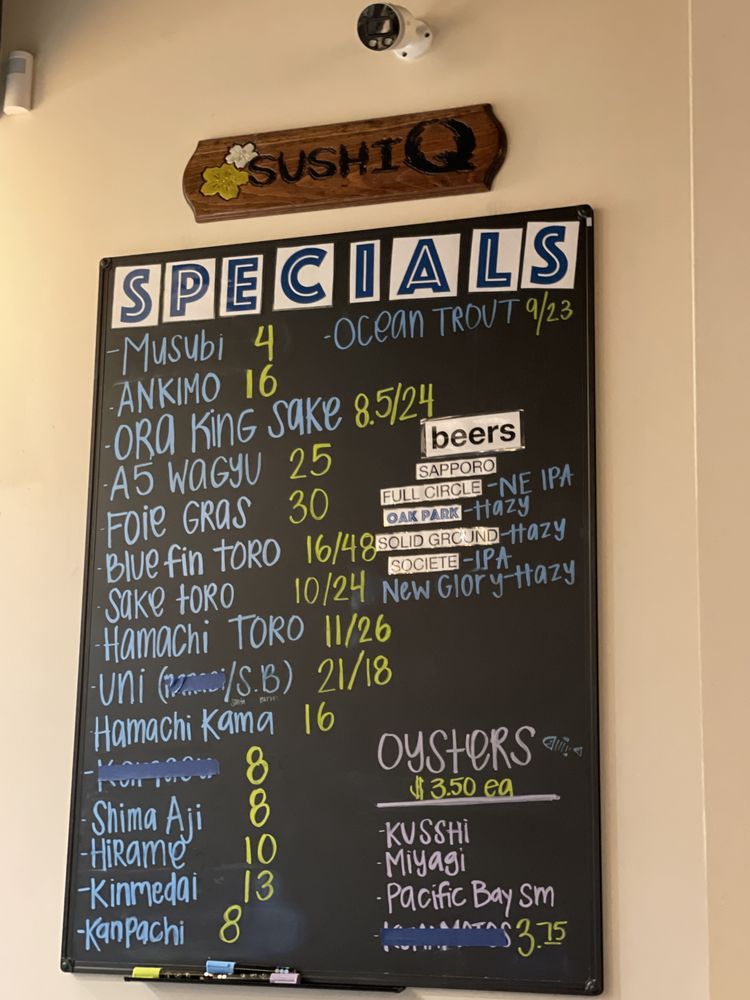 SUSHI Q
SPECIALS
-Musubi 4
-ANKIMO 16
-ORA KING SAKE 8.5/24
-A5 WAGYU 25
-FOIE GRAS 30
-Bluefin TORO 16/48
-SAKE TORO 10/24
-Hamachi TORO 11/26
-uni ( /S.B) 21/18
Hamachi Kama 16
- 8
-Shima Aji 8
-HIRAME 10
-Kinmedai 13
-Kanpachi 8
-OCEAN TROUT 9/23
beers
SAPPORO
FULL CIRCLE-NE IPA
OAK PARK-Hazy
SOLID GROUND-Hazy
SOCIETE-IPA
New Glory-Hazy
OYSTERS
$3.50 ea
-KUSSHI
-Miyagi
-Pacific Bay Sm
- 3.75